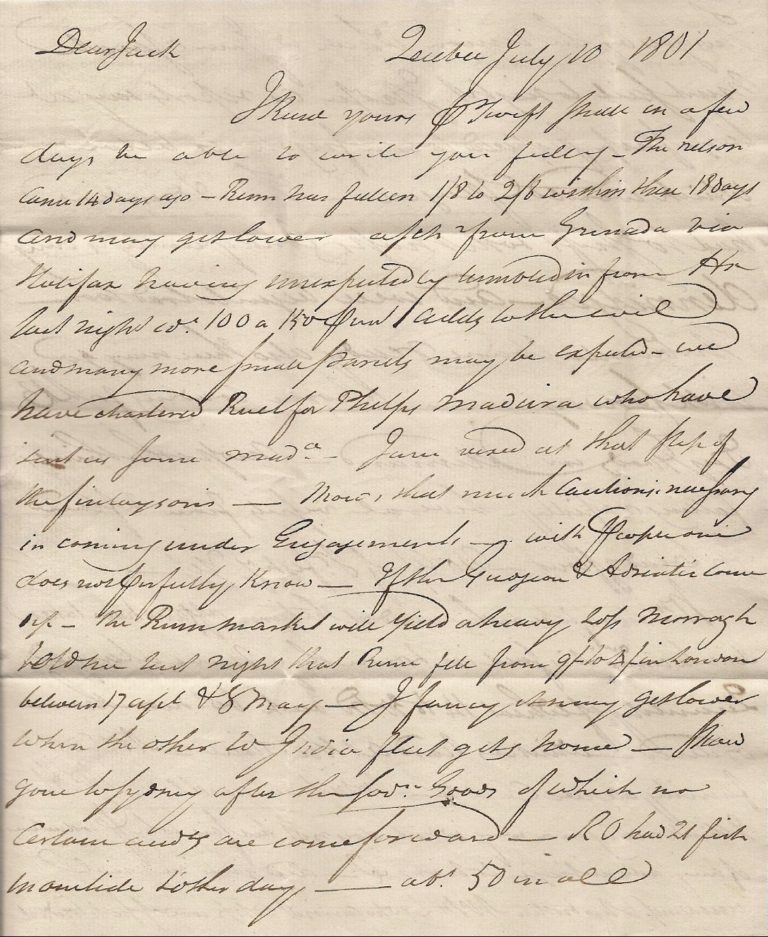 Dear Jack Quebec July 10 1801
I Recd yours Swift shall in a few
days be able to write you fully - The Nelson
came 14 days ago - Rum has fallen 1/8 to 2/8 within these 18 days
and may get lower a sch from Grenada via
Halifax having unexpectedly in from Hx
last night 100 a 150 adds to the evil
and many more small parcels may be expected - we
have chartered Ruel for Phelps Madeira who have
sent us some mada - I am vexed at that step of
the Finlaysons — that much caution is necessary
in coming under Engagements - with people one
does not perfectly Know — If the & Adriatic come
up - the Rum market will yield a heavy loss Morrogh
told me last night that Rum fell from to in London
between 17 apl & 8 May — I fancy it may get lower
when the other W India fleet gets home — Shaw
gone to Sydney after the Goods of which no
certain are come forward — R O had 21 fish
t'other day — abt 50 in all